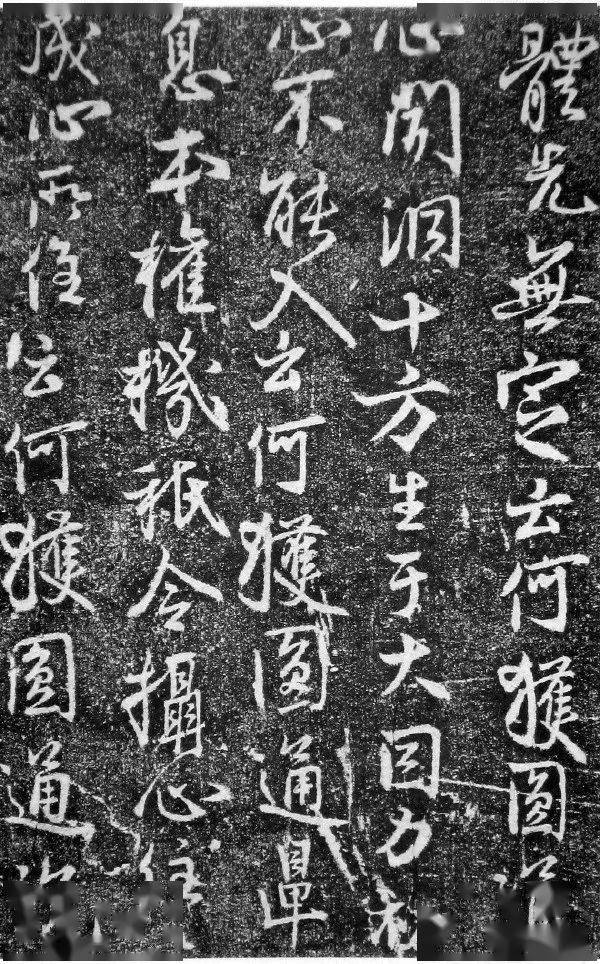 體先無定云何獲圓
心聞洞十方生于大因力
心不能入云何獲圓通鼻
息本權機祇令攝心住
成心所住云何獲圓通